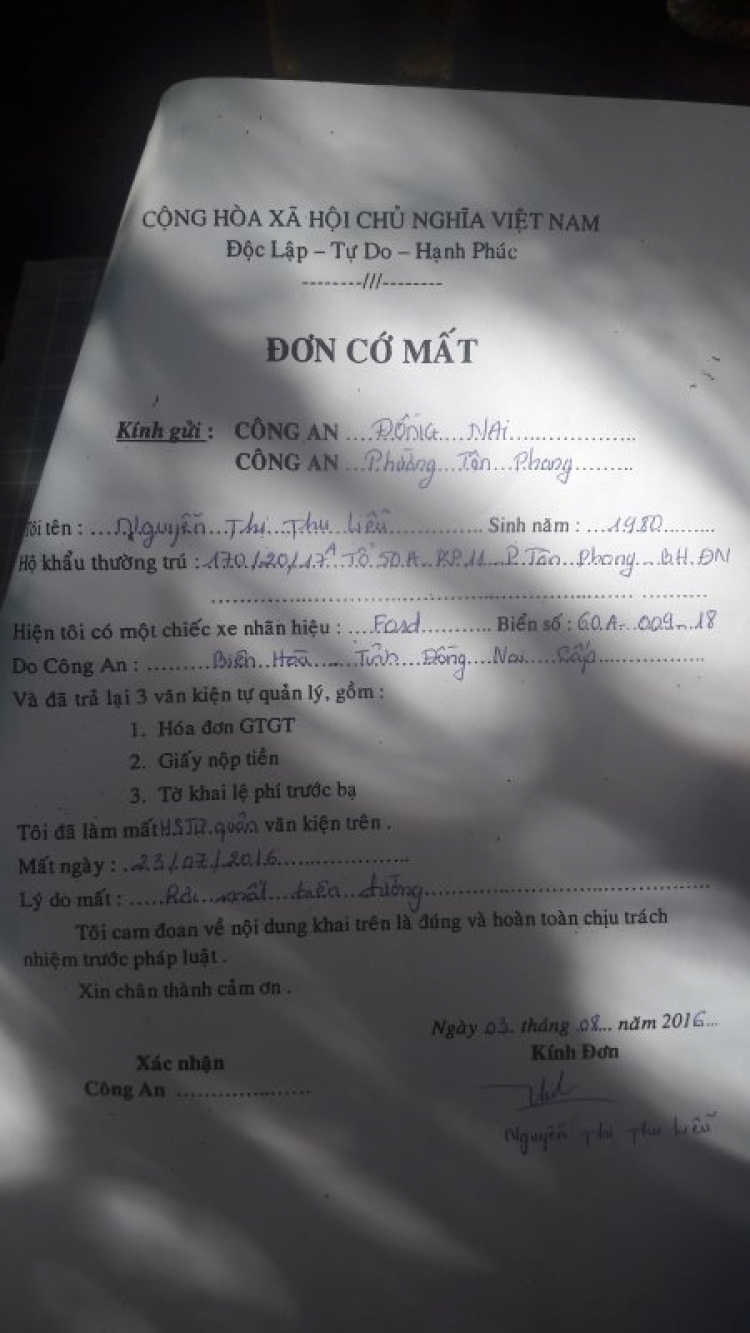 CỘNG HÒA XÃ HỘI CHỦ NGHĨA VIỆT NAM
Độc Lập – Tự Do – Hạnh Phúc
--------///--------
ĐƠN CỚ MẤT
Kính gửi : CÔNG AN ....ĐỒNG....NAI..................
CÔNG AN ...Phường...Tân...Phong.........
Tôi tên : ....Nguyễn...Thị...Thu Liễu............... Sinh năm : ...1980.........
Hộ khẩu thường trú : 170./20/17A Tổ 50.A...KP.11...P.Tân...Phong...B.H.ĐN
Hiện tôi có một chiếc xe nhãn hiệu : ....Ford........... Biển số : 60.A-.009-18
Do Công An : .........Biên Hoà.....Tỉnh...Đồng...Nai.....Cấp..................
Và đã trả lại 3 văn kiện tự quản lý, gồm :
1. Hóa đơn GTGT
2. Giấy nộp tiền
3. Tờ khai lệ phí trước bạ
Tôi đã làm mất H.S Tự.quản văn kiện trên .
Mất ngày : .23/07/2016...................
Lý do mất : .....Rơi...mất...trên...đường............................................
Tôi cam đoan về nội dung khai trên là đúng và hoàn toàn chịu trách
nhiệm trước pháp luật .
Xin chân thành cảm ơn .
Ngày .03. tháng .08... năm 2016...
Xác nhận
Kính Đơn
Công An ....................
Nguyễn Thị Thu Liễu